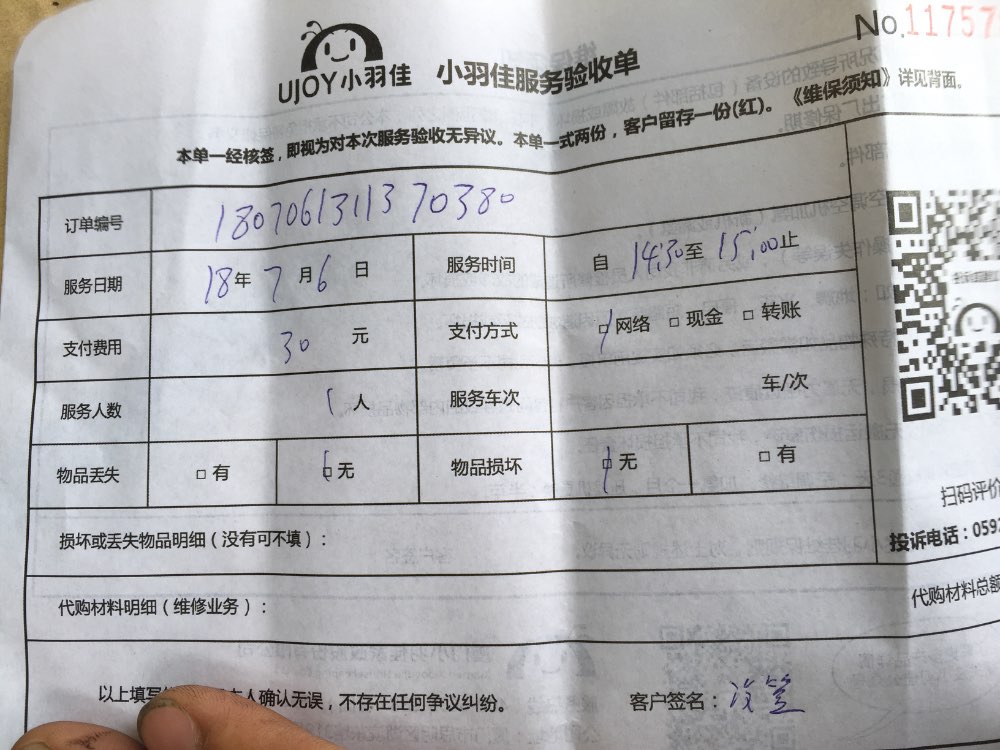 No.11757
UJOY小羽佳 小羽佳服务验收单
本单一经核签，即视为对本次服务验收无异议。本单一式两份，客户留存一份(红)。《维保须知》详见背面。
订单编号 180706131137 0380
服务日期 18年 7 月 6 日 服务时间 自 14:30 至 15:00 止
支付费用 30 元 支付方式 □ 网络 □ 现金 □ 转账
服务人数 1 人 服务车次 车/次
物品丢失 □ 有 □ 无 物品损坏 □ 无 □ 有
扫码评价
损坏或丢失物品明细（没有可不填）：
投诉电话：059
代购材料明细（维修业务）：
代购材料总额
以上填写 人确认无误，不存在任何争议纠纷。
客户签名：